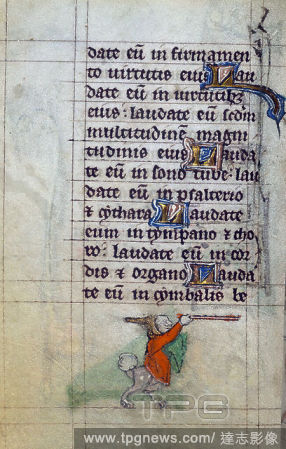 date eū in firmamen
to uirtutis eius Lau
date eū in uirtutibꝫ
eius: laudate eū scdm
multitudinē magni
tudinis eius Lauda
te eū in sono tube: lau
date eū in psalterio
& cythara Laudate
eum in tympano & cho
ro: laudate eū in cor
dis & organo Lauda
te eū in cymbalis be
TPG
www.tpgnews.com/ 達志影像